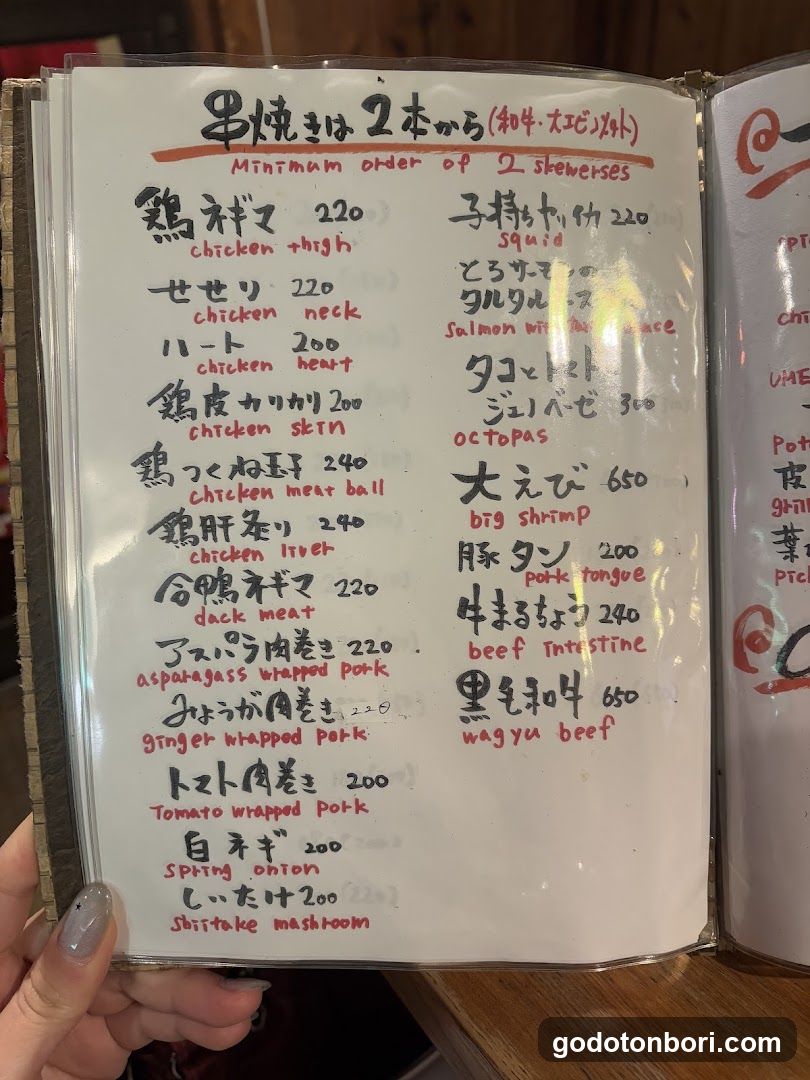 串焼きは2本から(和牛・大エビ
Minimum order of 2 skewerses
鶏ネギマ 220
chicken thigh
せせり 220
chicken neck
ハート 200
chicken heart
鶏皮カリカリ 200
chicken skin
鶏つくね玉子 240
chicken meat ball
鶏肝炙り 240
chicken liver
合鴨ネギマ 220
dack meat
アスパラ肉巻き 220
asparagass wrapped pork
みょうが肉巻き 220
ginger wrapped pork
トマト肉巻き 200
Tomato wrapped pork
白ネギ 200
spring onion
しいたけ 200
shiitake mashroom
子持ちヤリイカ 220
squid
とろサーモンの
タルタルソース
salmon with
タコとトマト
ジェノベーゼ 300
octopas
大えび 650
big shrimp
豚タン 200
pork tongue
牛まるちょう 240
beef intestine
黒毛和牛 650
wagyu beef
godotonbori.com